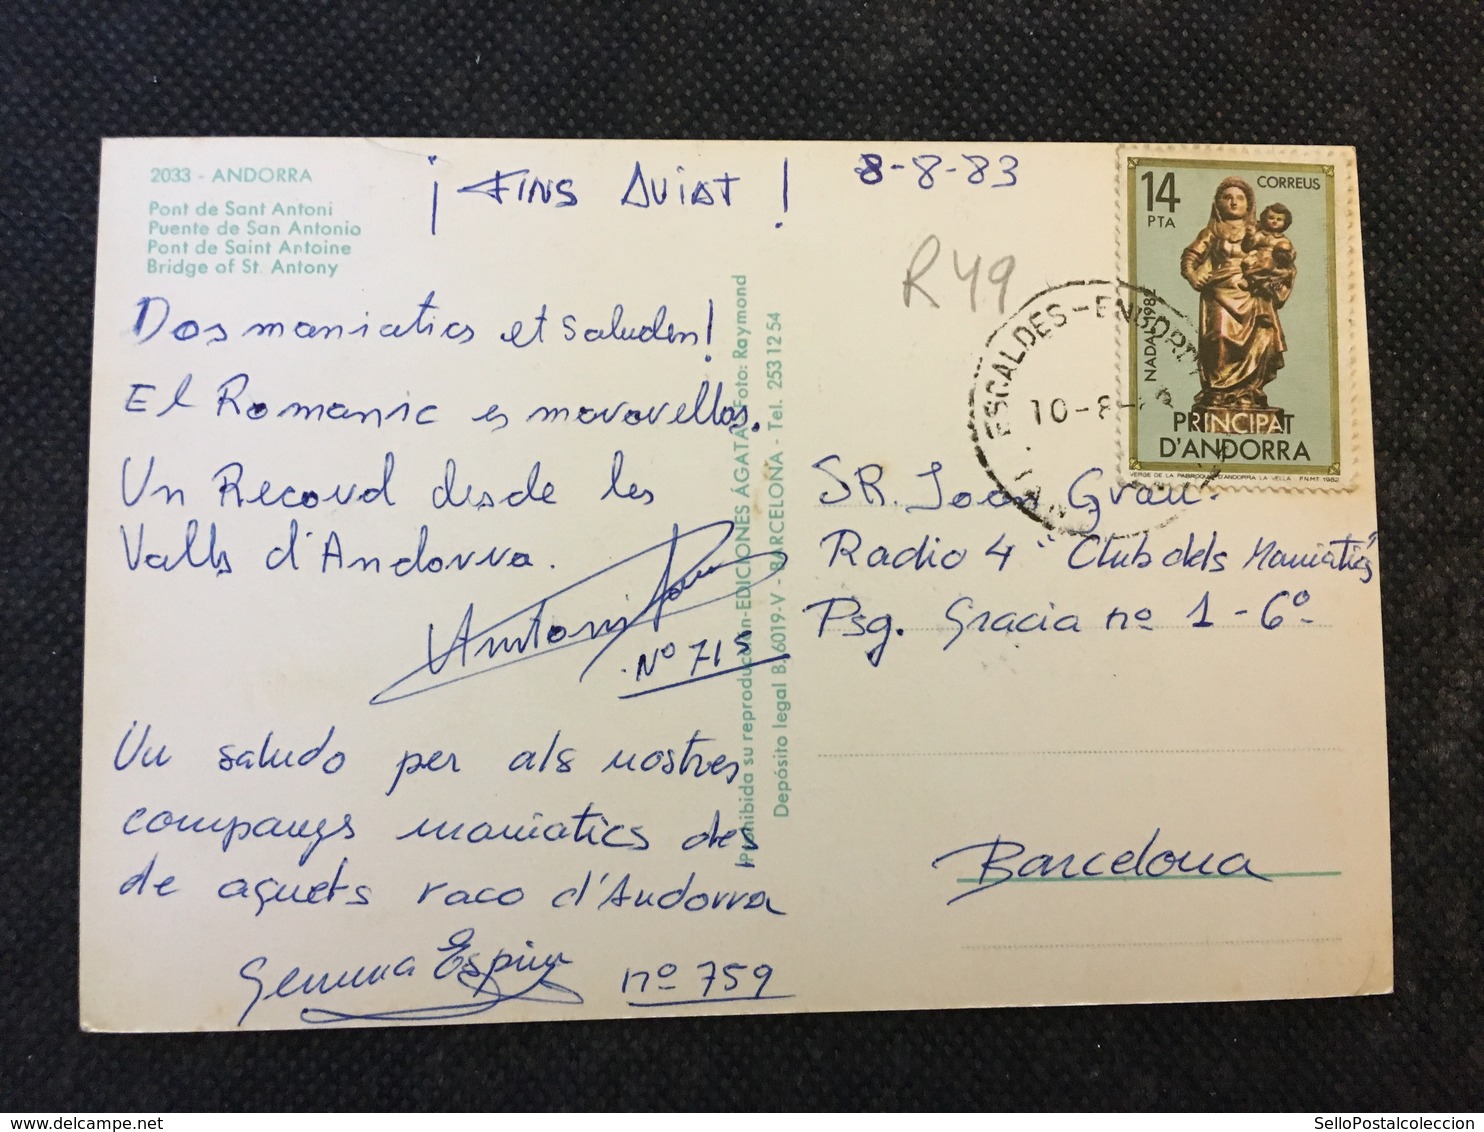 2033 - ANDORRA
Pont de Sant Antoni
Puente de San Antonio
Pont de Saint Antoine
Bridge of St. Antony
¡ FINS AVIAT !
8-8-83
R49
Dos maniatics et saluden!
El Romanic es maravellos.
Un Record desde les
Valls d'Andorra.
Antoni
Nº 715
Un saludo per als nostres
companys maniatics des
de aquets raco d'Andorra
Gemma Espín
nº 759
Prohibida su reproducción-EDICIONES ÁGATA/Foto: Raymond
Depósito legal B. 6019-V - BARCELONA - Tel. 253 12 54
14
PTA
CORREUS
NADAL 1982
PRINCIPAT
D'ANDORRA
VERGE DE LA PARROQUIA D'ANDORRA LA VELLA F.N.M.T. 1982
ESCALDES-ENGORDANY
10-8-
SR. Joan Grau.
Radio 4 "Club dels Maniatics"
Psg. Gracia nº 1 - 6º
Barcelona
SelloPostalcoleccion